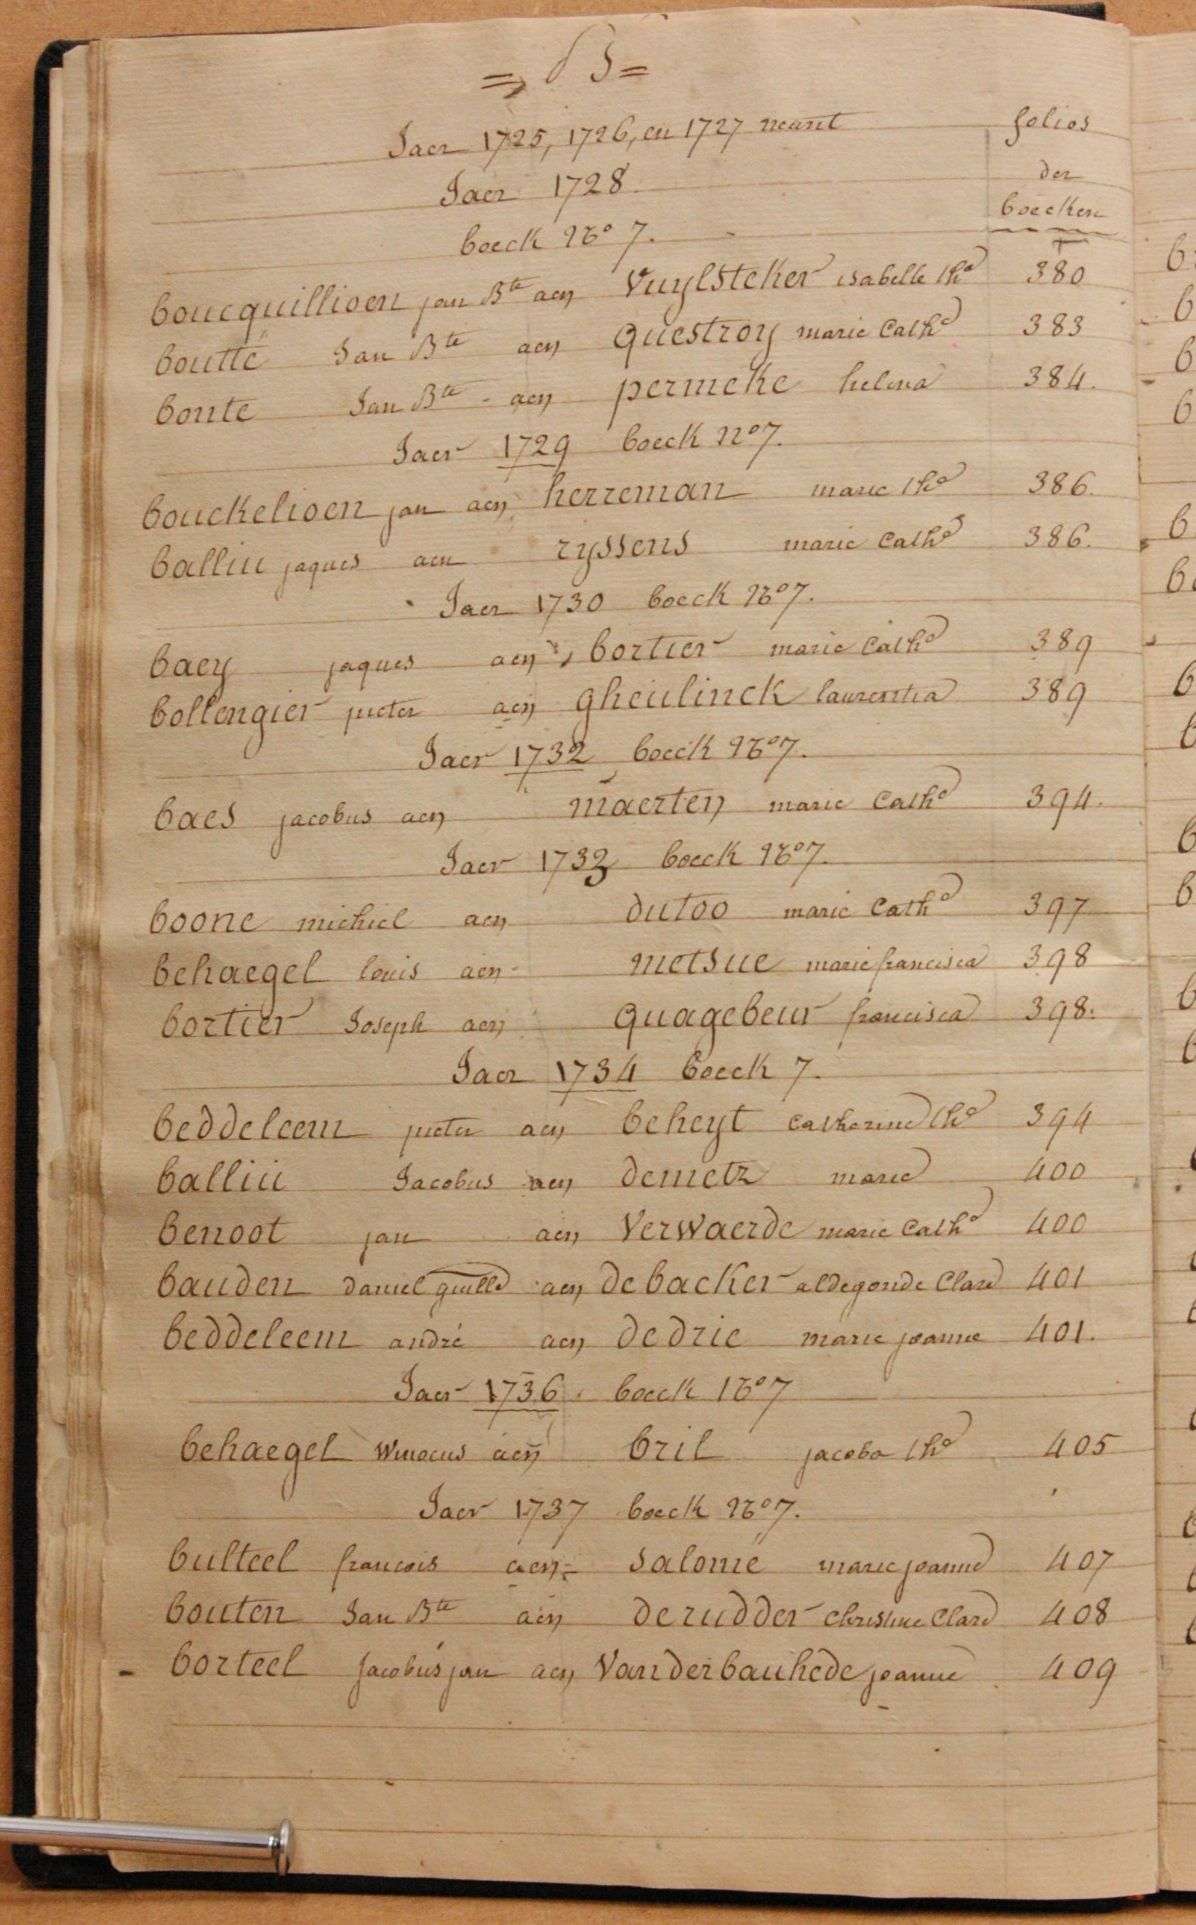 = B =
Jaer 1725, 1726, en 1727 neant folios
Jaer 1728 der
boeck No 7. boecken
boucquillioen jan Bte aen vuylsteker isabelle the 380
boutté Jan Bte aen questroy marie Cathe 383
bonte Jan Bte aen permeke helena 384.
Jaer 1729 boeck no 7.
bouckelioen jan aen herreman marie the 386.
balliu jaques aen ryssens marie Cathe 386.
Jaer 1730 boeck No 7.
baey jaques aen bortier marie Cathe 389
bollengier pieter aen gheulinck laurentia 389
Jaer 1732 boeck No 7.
baes jacobus aen maerten marie Cathe 394.
Jaer 1733 boeck No 7.
boone michiel aen dutoo marie Cathe 397
behaegel louis aen metsue marie francisca 398
bortier Joseph aen quagebeur francisca 398.
Jaer 1734 boeck 7.
beddeleem pieter aen beheyt Catherine the 394
balliu Jacobus aen demetz marie 400
benoot jan aen verwaerde marie Cathe 400
bauden daniel guille aen debacker aldegonde Clare 401
beddeleem andré aen dedrie marie joanne 401.
Jaer 1736 boeck No 7
behaegel winocus aen bril jacoba the 405
Jaer 1737 boeck No 7.
bulteel francois aen salomé marie joanne 407
bouten Jan Bte aen derudder Christine Clare 408
- borteel Jacobus jan aen vanderbauhede joanne 409